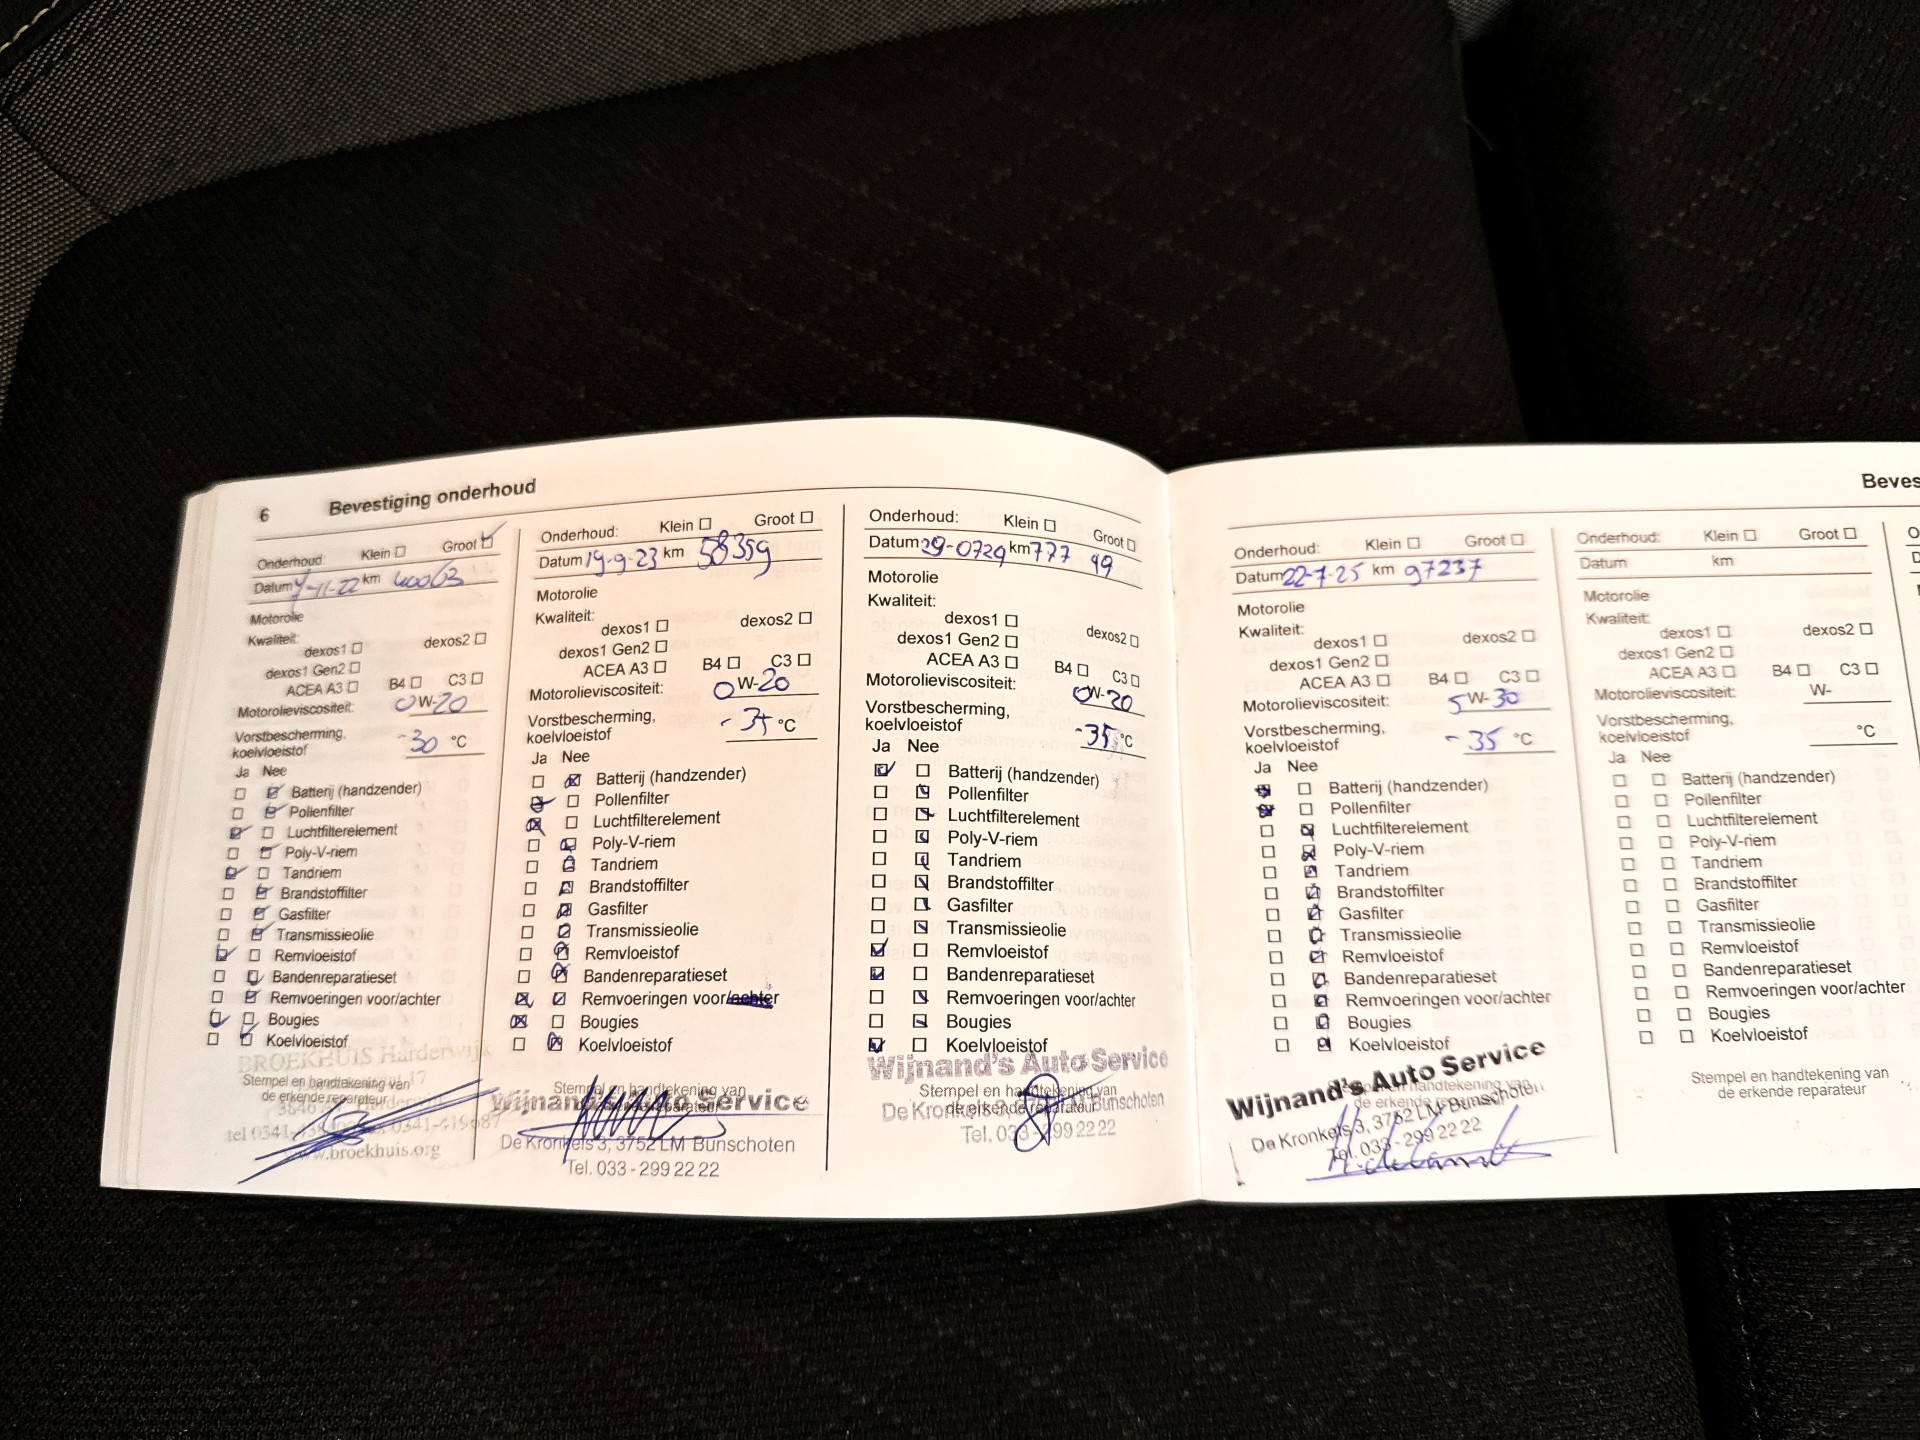 6 Bevestiging onderhoud
Onderhoud: Klein Groot
Datum 7-11-22 km 40063
Motorolie
Kwaliteit:
dexos1 dexos2
dexos1 Gen2
ACEA A3 B4 C3
Motorolieviscositeit: 0W-20
Vorstbescherming,
koelvloeistof -30 °C
Ja Nee
Batterij (handzender)
Pollenfilter
Luchtfilterelement
Poly-V-riem
Tandriem
Brandstoffilter
Gasfilter
Transmissieolie
Remvloeistof
Bandenreparatieset
Remvoeringen voor/achter
Bougies
Koelvloeistof
BROEKHUIS Harderwijk
Stempel en handtekening van
de erkende reparateur
www.broekhuis.org
Onderhoud: Klein Groot
Datum 19-9-23 km 58359
Motorolie
Kwaliteit:
dexos1 dexos2
dexos1 Gen2
ACEA A3 B4 C3
Motorolieviscositeit: 0W-20
Vorstbescherming,
koelvloeistof -35 °C
Ja Nee
Batterij (handzender)
Pollenfilter
Luchtfilterelement
Poly-V-riem
Tandriem
Brandstoffilter
Gasfilter
Transmissieolie
Remvloeistof
Bandenreparatieset
Remvoeringen voor/achter
Bougies
Koelvloeistof
Stempel en handtekening van
Wijnand's Auto Service
de erkende reparateur
De Kronkels 3, 3752 LM Bunschoten
Tel. 033 - 299 22 22
Onderhoud: Klein Groot
Datum 29-0724 km 777 99
Motorolie
Kwaliteit:
dexos1
dexos1 Gen2 dexos2
ACEA A3 B4 C3
Motorolieviscositeit: 0W-20
Vorstbescherming,
koelvloeistof -35 °C
Ja Nee
Batterij (handzender)
Pollenfilter
Luchtfilterelement
Poly-V-riem
Tandriem
Brandstoffilter
Gasfilter
Transmissieolie
Remvloeistof
Bandenreparatieset
Remvoeringen voor/achter
Bougies
Koelvloeistof
Wijnand's Auto Service
Stempel en handtekening van
de erkende reparateur
De Kronkels 3, 3752 LM Bunschoten
Tel. 033 - 299 22 22
Beves
Onderhoud: Klein Groot
Datum 22-7-25 km 97237
Motorolie
Kwaliteit:
dexos1 dexos2
dexos1 Gen2
ACEA A3 B4 C3
Motorolieviscositeit: 5W-30
Vorstbescherming,
koelvloeistof -35 °C
Ja Nee
Batterij (handzender)
Pollenfilter
Luchtfilterelement
Poly-V-riem
Tandriem
Brandstoffilter
Gasfilter
Transmissieolie
Remvloeistof
Bandenreparatieset
Remvoeringen voor/achter
Bougies
Koelvloeistof
Wijnand's Auto Service
Stempel en handtekening van
de erkende reparateur
De Kronkels 3, 3752 LM Bunschoten
Tel. 033 - 299 22 22
Onderhoud: Klein Groot
Datum km
Motorolie
Kwaliteit:
dexos1 dexos2
dexos1 Gen2
ACEA A3 B4 C3
Motorolieviscositeit: W-
Vorstbescherming,
koelvloeistof °C
Ja Nee
Batterij (handzender)
Pollenfilter
Luchtfilterelement
Poly-V-riem
Tandriem
Brandstoffilter
Gasfilter
Transmissieolie
Remvloeistof
Bandenreparatieset
Remvoeringen voor/achter
Bougies
Koelvloeistof
Stempel en handtekening van
de erkende reparateur